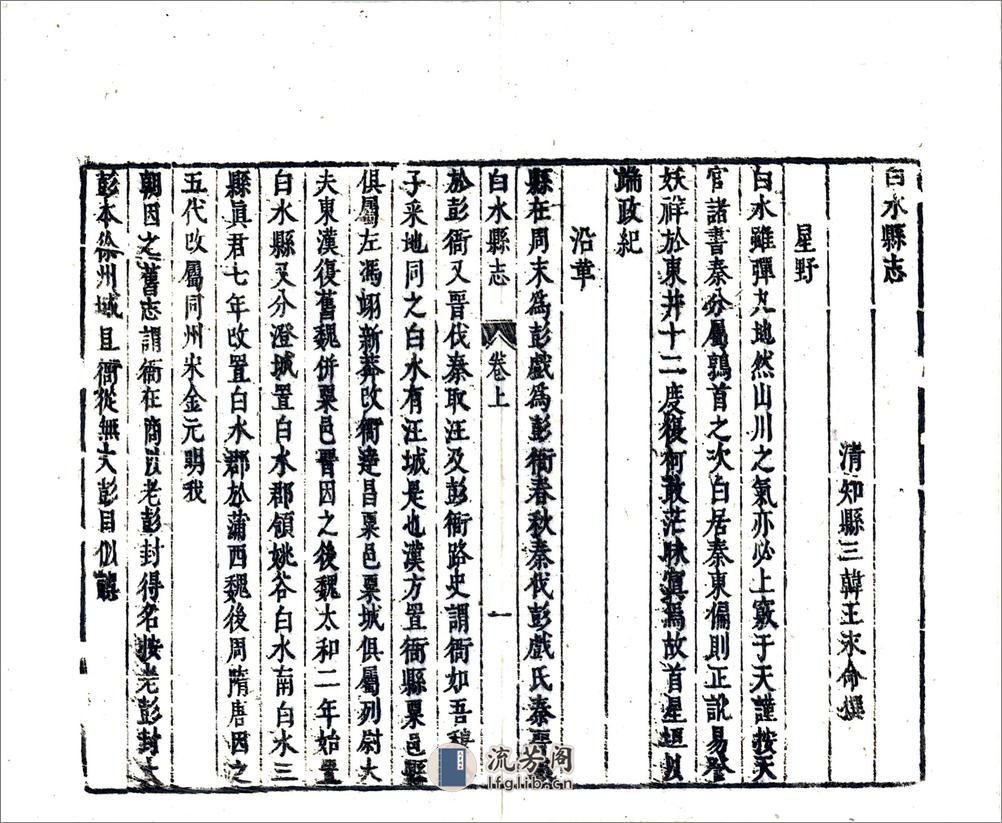 白水縣志
清知縣三韓王永命撰
星野
白水雖彈丸地然山川之氣亦必上竅于天謹按天
官諸書秦分屬鶉首之次白居秦東偏則正說易登
妖祥於東井十二度復何敢茫昧寘焉故首星垣以
端政紀
沿革
縣在周末為彭戲為彭衙春秋秦伐彭戲氏秦晉戰
白水縣志 卷上 一
於彭衙又晉伐秦取汪及彭衙路史謂衙如吾穆
子釆地同之白水有汪城是也漢方置衙縣粟邑縣
俱屬左馮翊新莽改衙達昌粟邑粟城俱屬列尉大
夫東漢復舊魏併粟邑晉因之後魏太和二年始置
白水縣又分澄城置白水郡領姚谷白水南白水三
縣眞君七年改置白水郡於蒲西魏後周隋唐因之
五代改屬同州宋金元明我
朝因之舊志謂衙在商以老彭封得名按老彭封大
彭本徐州域且衙從無大彭目似誤
流芳阁
lfglib.cn